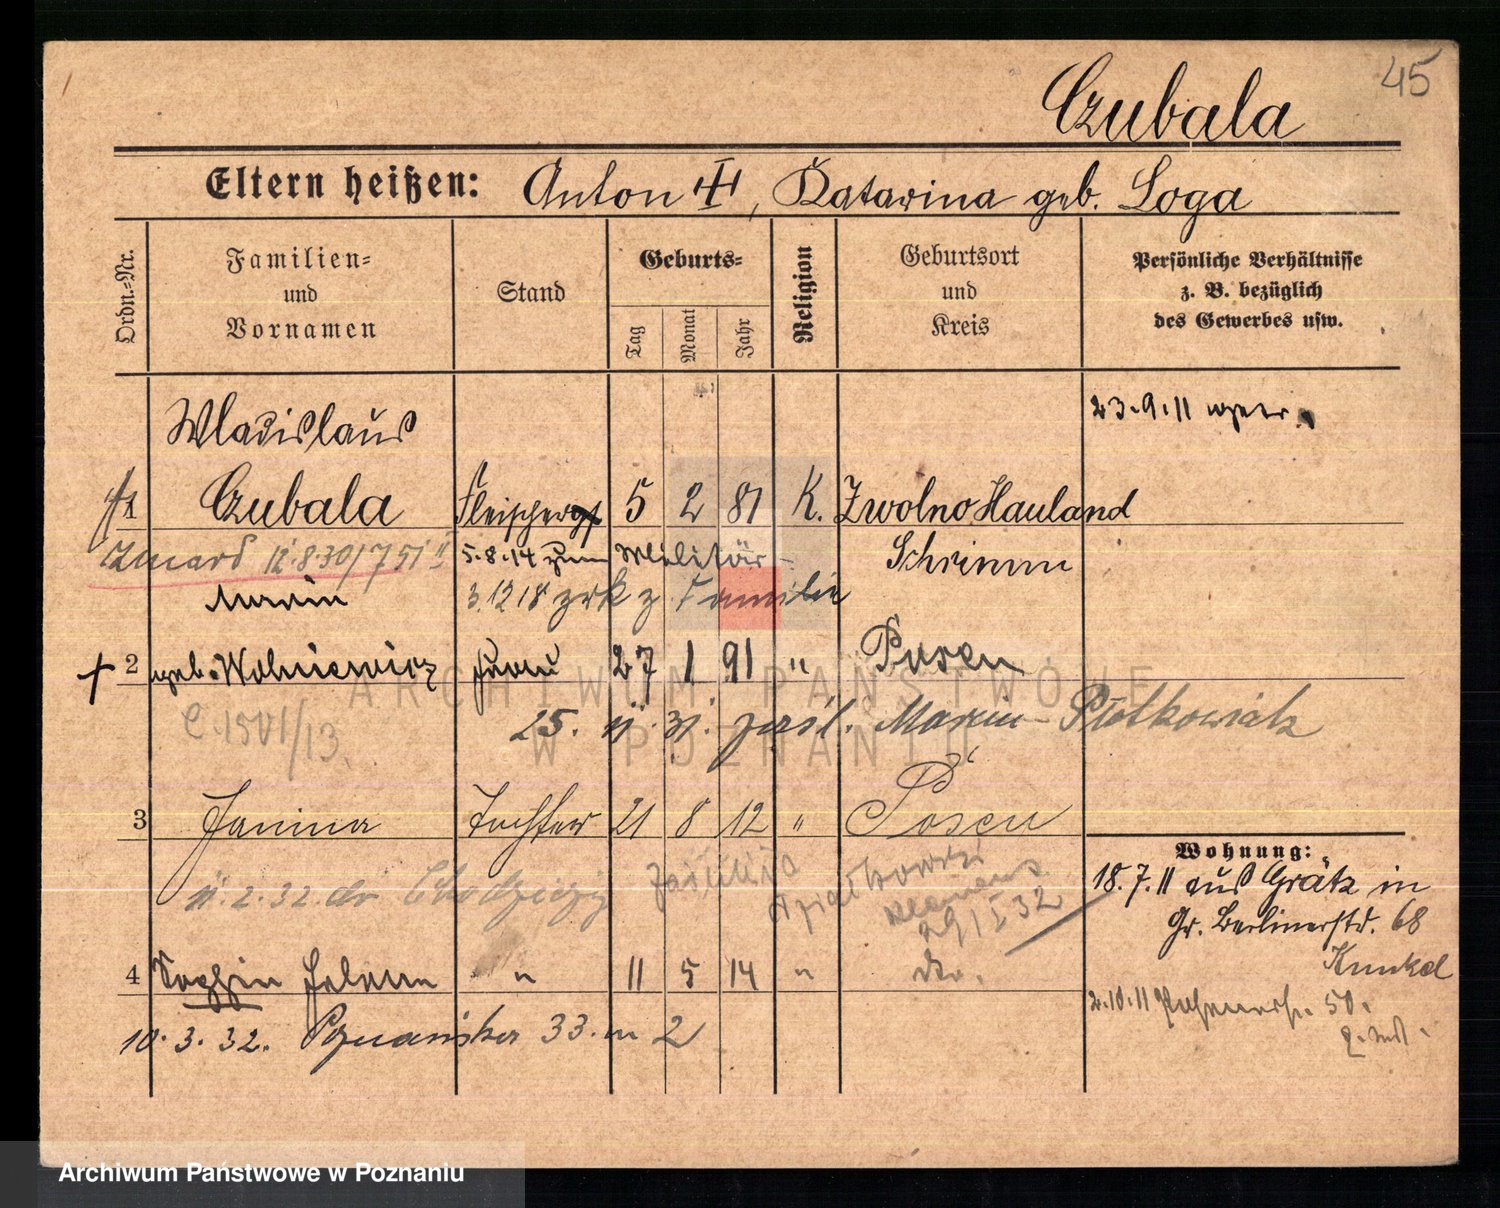 45
Czubala
Eltern heißen: Anton, Katarina geb. Loga
Ordn.-Nr.
Familien-
und
Vornamen
Stand
Geburts-
Tag
Monat
Jahr
Religion
Geburtsort
und
Kreis
Persönliche Verhältnisse
z. B. bezüglich
des Gewerbes usw.
23.9.11
Wladislaus
1 Czubala Fleischerges 5 2 81 K. Zwolno Hauland
Zmarł 12.8.30/751 II 5.8.14 zum Militär Schrimm
3.12.18 zrk z Familie
2 geb. Wolniewicz Frau 27 1 91 " Posen
25. 31.
C.15VI/13.
3 Janina Tochter 21 8 12 " Posen
Wohnung:
2.32.
29 I 32
18.7.11 aus Grätz in
Gr. Berlinerstr. 68
Kunkel
4 Helene " 11 5 14 " do.
2.10.11 50.
10.3.32. Poznańska 33. m 2
ARCHIWUM PAŃSTWOWE
W POZNANIU
Archiwum Państwowe w Poznaniu